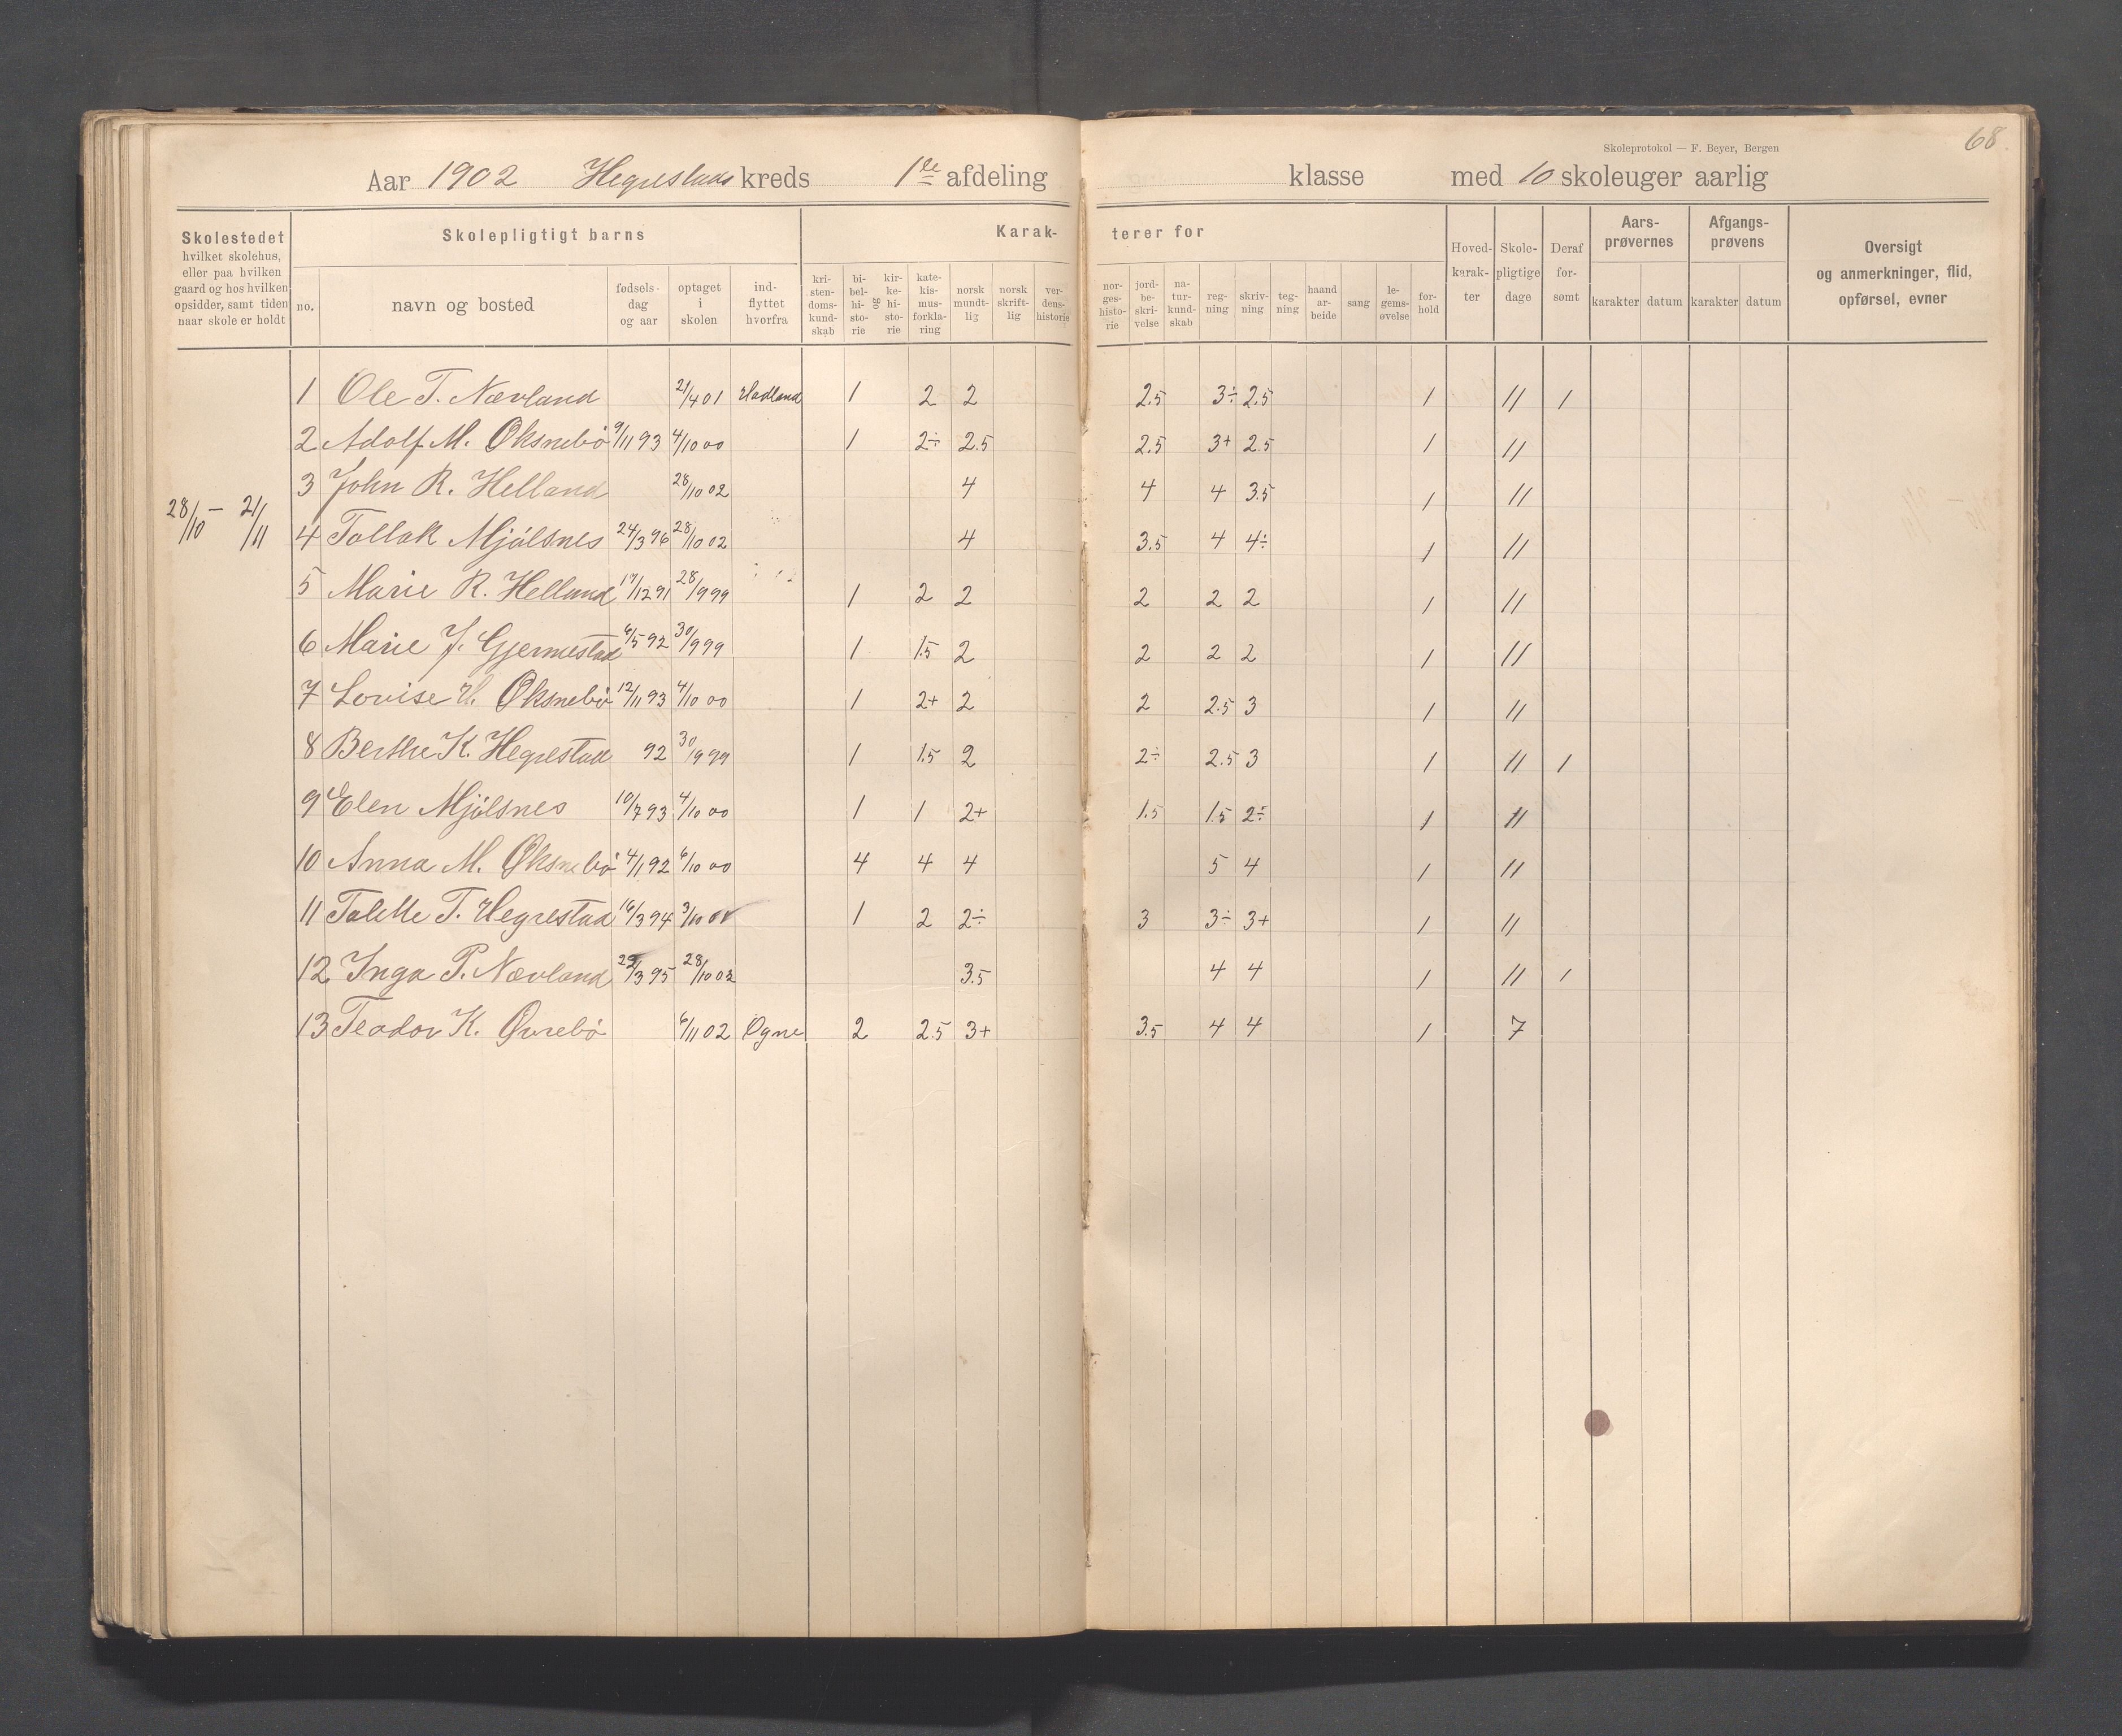 68
Skoleprotokol — F. Beyer, Bergen
Aar 1902 Hegrestads kreds 1ste afdeling klasse med 10 skoleuger aarlig
Skolestedet hvilket skolehus, eller paa hvilken gaard og hos hvilken opsidder, samt tiden naar skole er holdt
Skolepligtigt barns
Karakterer for
no. navn og bosted fødselsdag og aar optaget i skolen indflyttet hvorfra kristendomskundskab bibelhistorie og kirkehistorie katekismusforklaring norsk mundtlig norsk skriftlig verdenshistorie norgeshistorie jordbeskrivelse naturkundskab regning skrivning tegning haandarbeide sang legemsøvelse forhold
Hovedkarakter Skolepligtige dage Deraf forsømt Aarsprøvernes karakter datum Afgangsprøvens karakter datum Oversigt og anmerkninger, flid, opførsel, evner
1 Ole T. Nævland 21/4 01 Hadland 1 2 2 2.5 3÷ 2.5 1 11 1
2 Adolf M. Øksnebö 9/11 93 4/10 00 1 2÷ 2.5 2.5 3+ 2.5 1 11
3 John R. Helland 28/10 02 4 4 4 3.5 1 11
28/10 — 21/11
4 Tollak Mjölsnes 24/3 96 28/10 02 4 3.5 4 4÷ 1 11
5 Marie R. Helland 17/12 91 28/9 99 1 2 2 2 2 2 1 11
6 Marie J. Gjermestad 6/5 92 30/9 99 1 1.5 2 2 2 2 1 11
7 Lovise Øksnebö 12/11 93 4/10 00 1 2+ 2 2 2.5 3 1 11
8 Berthe K. Hegrestad 92 30/9 99 1 1.5 2 2÷ 2.5 3 1 11 1
9 Elen Mjölsnes 10/7 93 4/10 00 1 1 2+ 1.5 1.5 2÷ 1 11
10 Anna M. Øksnebö 4/1 92 6/10 00 4 4 4 5 4 1 11
11 Talette T. Hegrestad 16/3 94 3/10 01 1 2 2÷ 3 3÷ 3+ 1 11
12 Inga P. Nævland 29/3 95 28/10 02 3.5 4 4 1 11 1
13 Teodor K. Øvrebö 6/11 02 Ogne 2 2.5 3+ 3.5 4 4 1 7